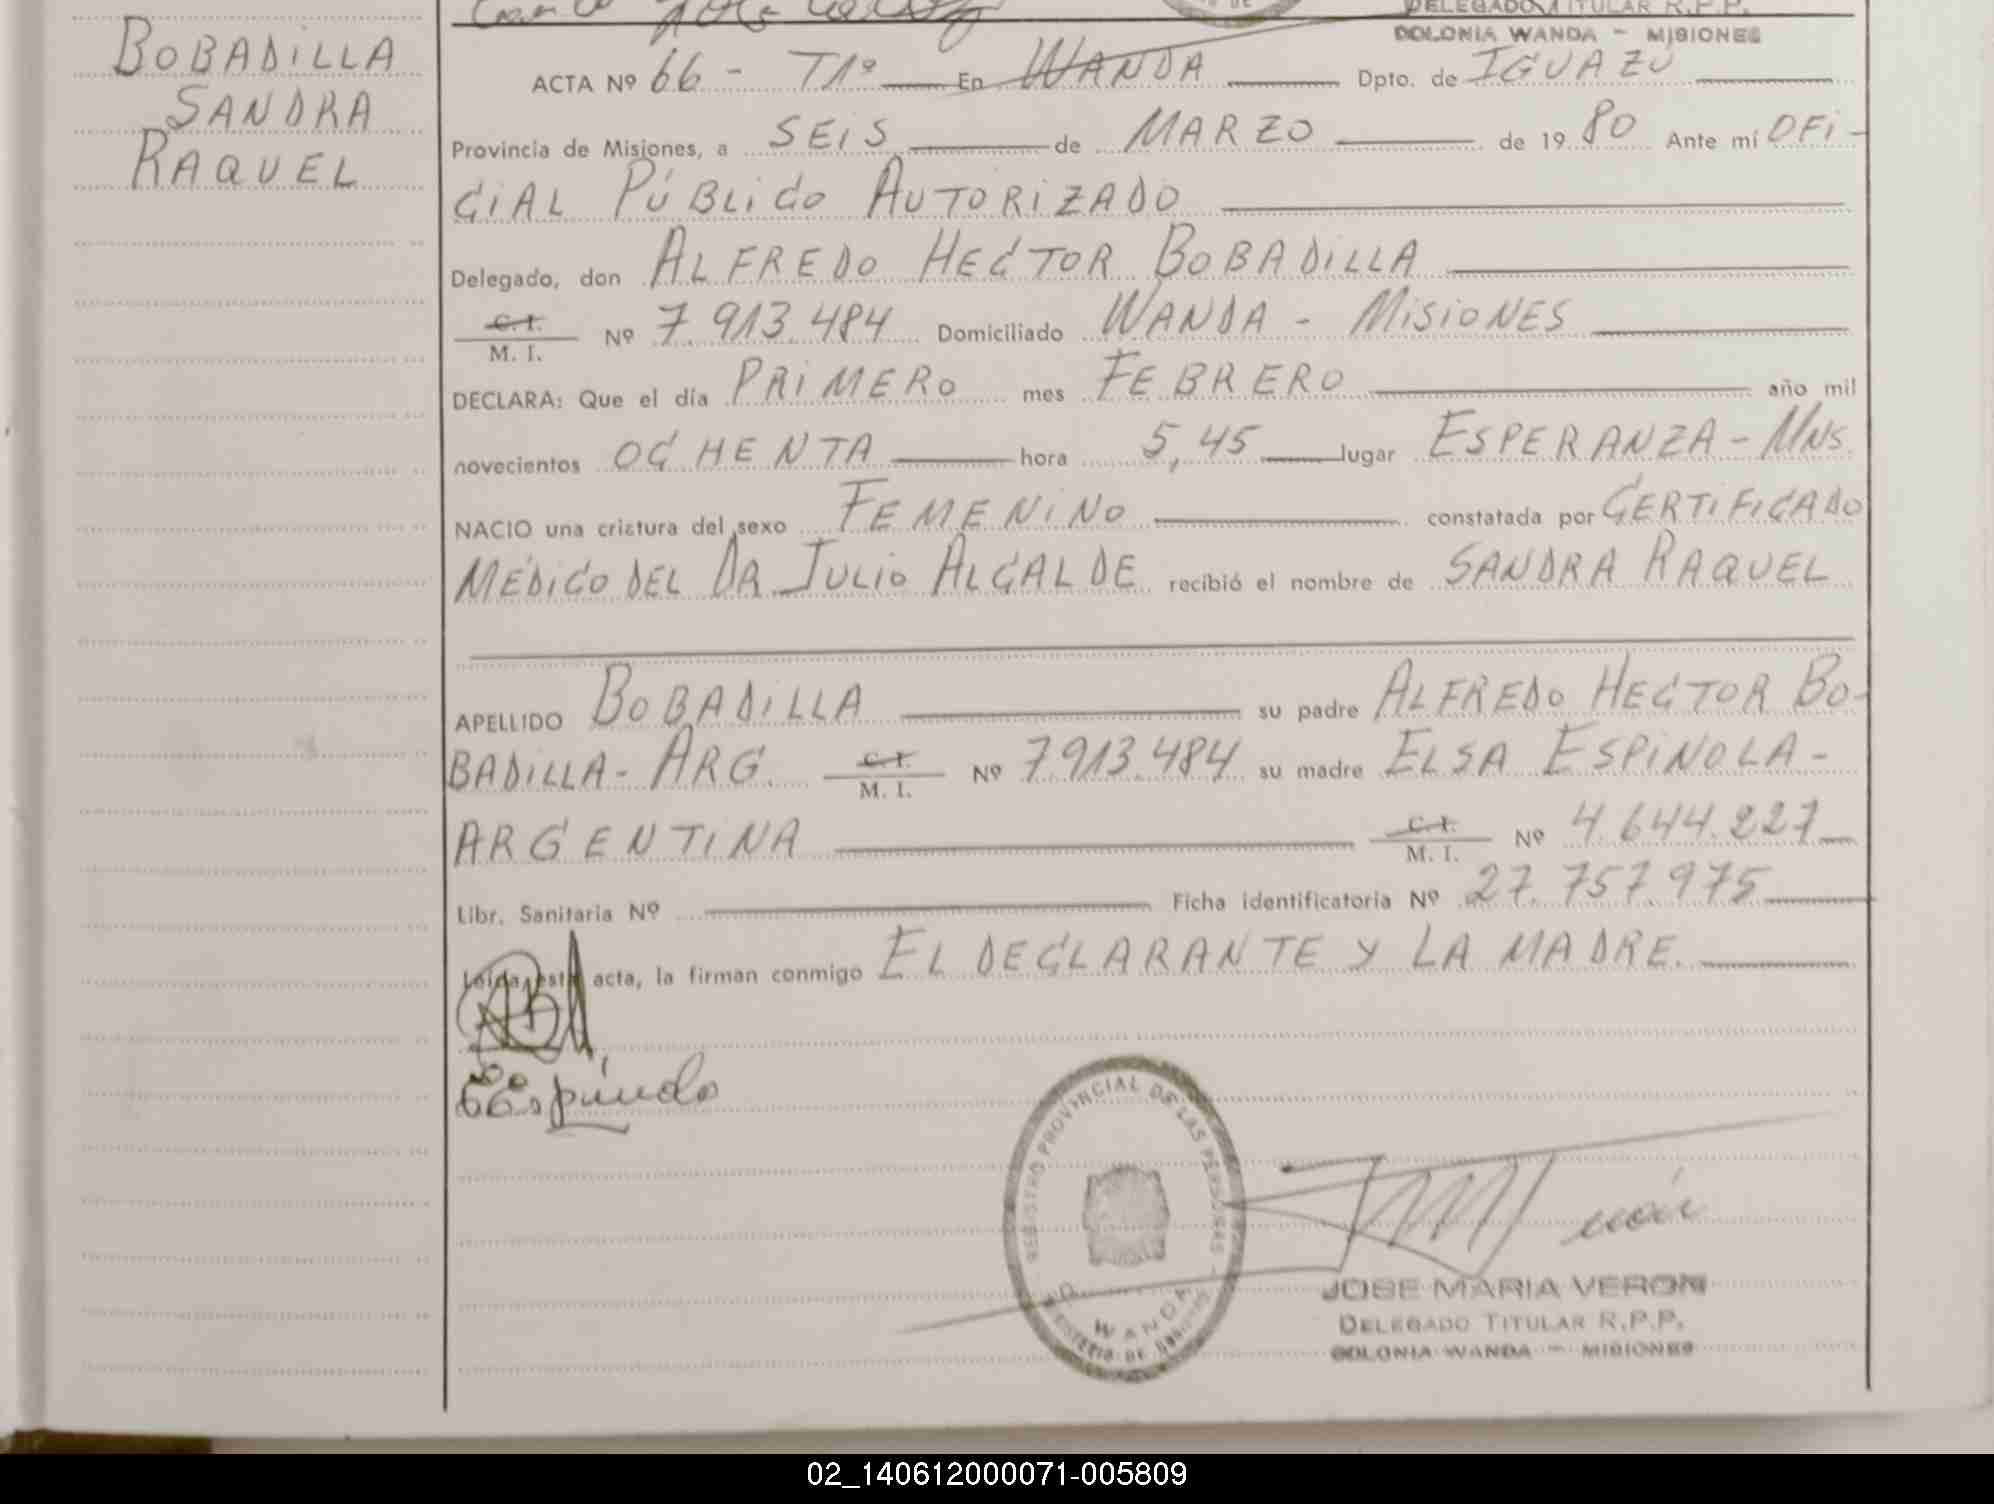 DELEGADO TITULAR R.P.P.
COLONIA WANDA - MISIONES
BOBADILLA
SANDRA
RAQUEL
ACTA Nº 66 - T1º En WANDA Dpto. de IGUAZÚ
Provincia de Misiones, a SEIS de MARZO de 19 80 Ante mí OFI-
CIAL PÚBLICO AUTORIZADO
Delegado, don ALFREDO HECTOR BOBADILLA
C.I. / M. I. Nº 7.913.484 Domiciliado WANDA - MISIONES
DECLARA: Que el día PRIMERO mes FEBRERO año mil
novecientos OCHENTA hora 5,45 lugar ESPERANZA - Mns.
NACIO una criatura del sexo FEMENINO constatada por CERTIFICADO
MÉDICO DEL DR JULIO ALCALDE recibió el nombre de SANDRA RAQUEL
APELLIDO BOBADILLA su padre ALFREDO HECTOR BO-
BADILLA - ARG. C.I. / M. I. Nº 7.913.484 su madre ELSA ESPINOLA -
ARGENTINA C.I. / M. I. Nº 4.644.227
Libr. Sanitaria Nº Ficha identificatoria Nº 27.757.975
Leída esta acta, la firman conmigo EL DECLARANTE Y LA MADRE.
REGISTRO PROVINCIAL DE LAS PERSONAS
WANDA
MINISTERIO DE GOBIERNO
JOSE MARIA VERON
DELEGADO TITULAR R.P.P.
COLONIA WANDA - MISIONES
02_140612000071-005809